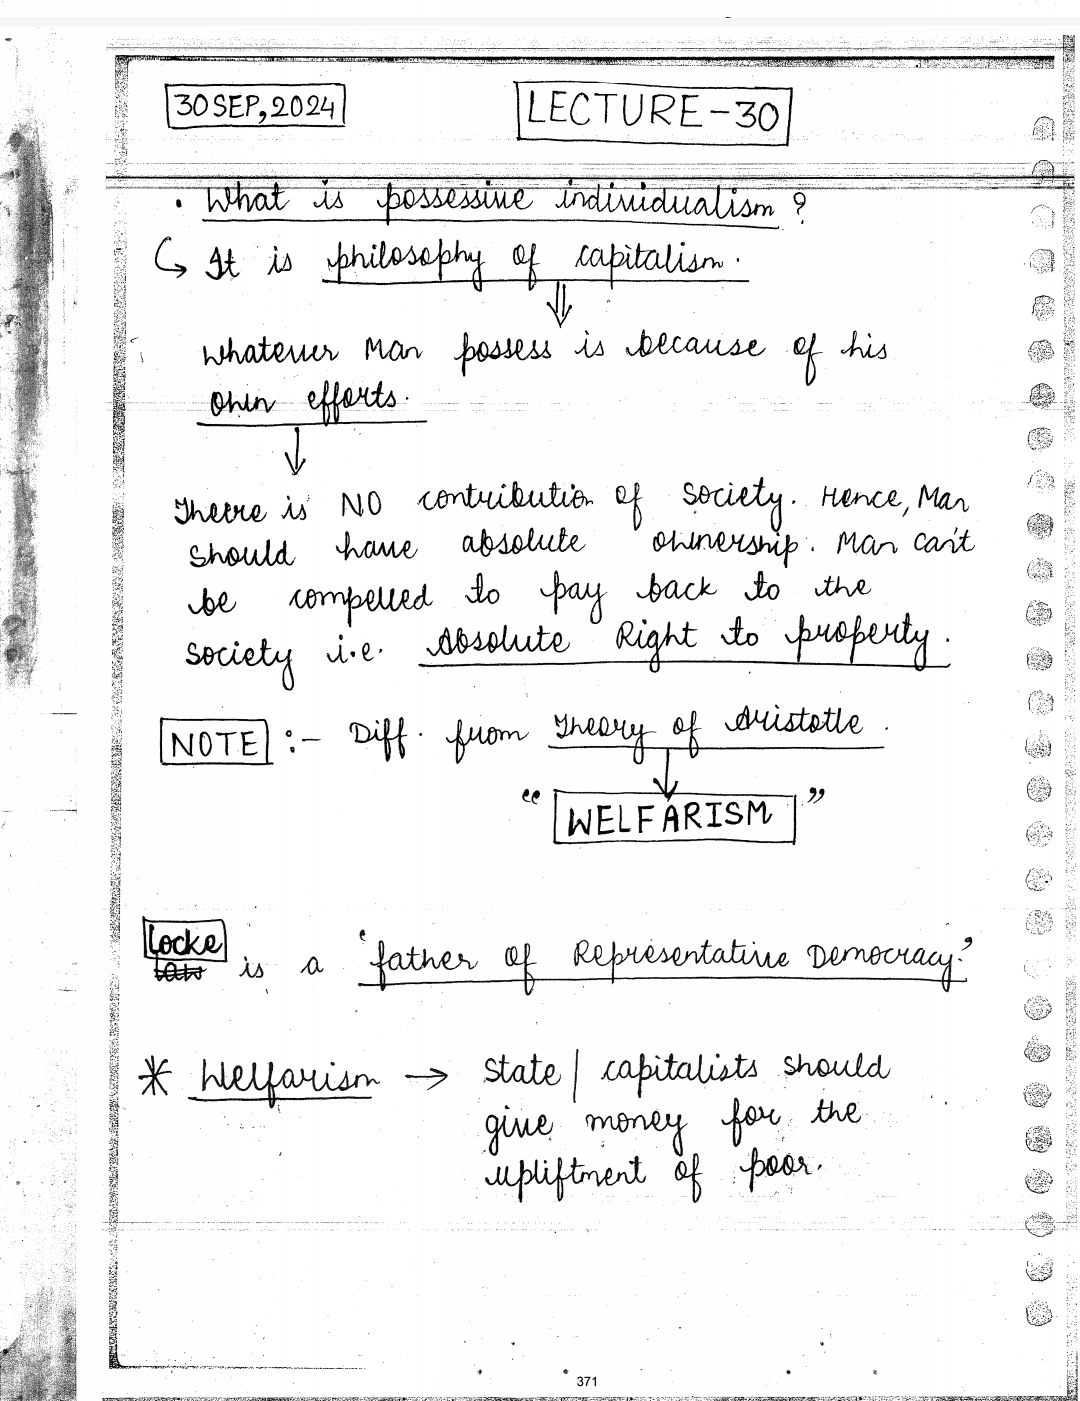 30 SEP, 2024
LECTURE-30
• What is possessive individualism ?
↳ It is philosophy of capitalism.
⇓
whatever Man possess is because of his
own efforts.
↓
There is NO contribution of society. Hence, Man
should have absolute ownership. Man can't
be compelled to pay back to the
society i.e. Absolute Right to property.
NOTE :- Diff. from Theory of Aristotle.
↓
" WELFARISM "
Locke is a 'father of Representative Democracy.'
* Welfarism → State / capitalists should
give money for the
upliftment of poor.
371